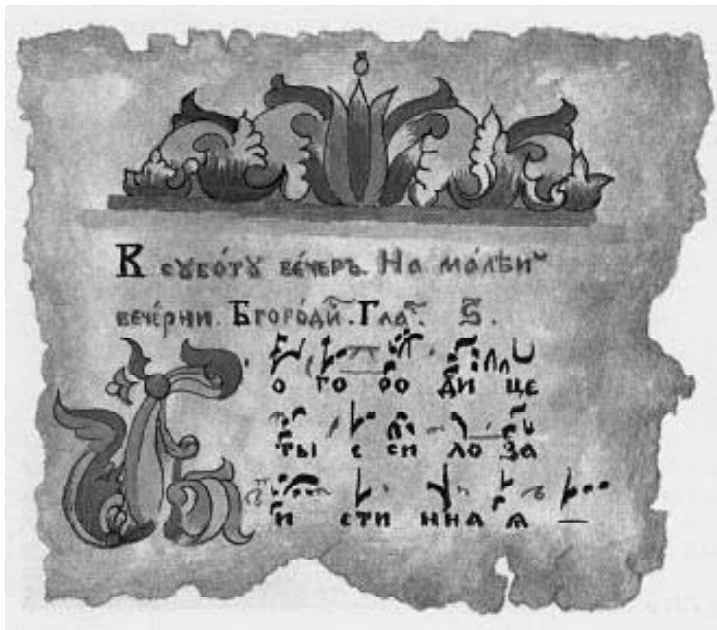 В сꙋбо́тꙋ ве́черъ. На ма́лѣи
вече́рни. Бгоро́ди. Гла. Ѕ.
Б о го ро ди це
ты е си ло за
и сти нна ѧ